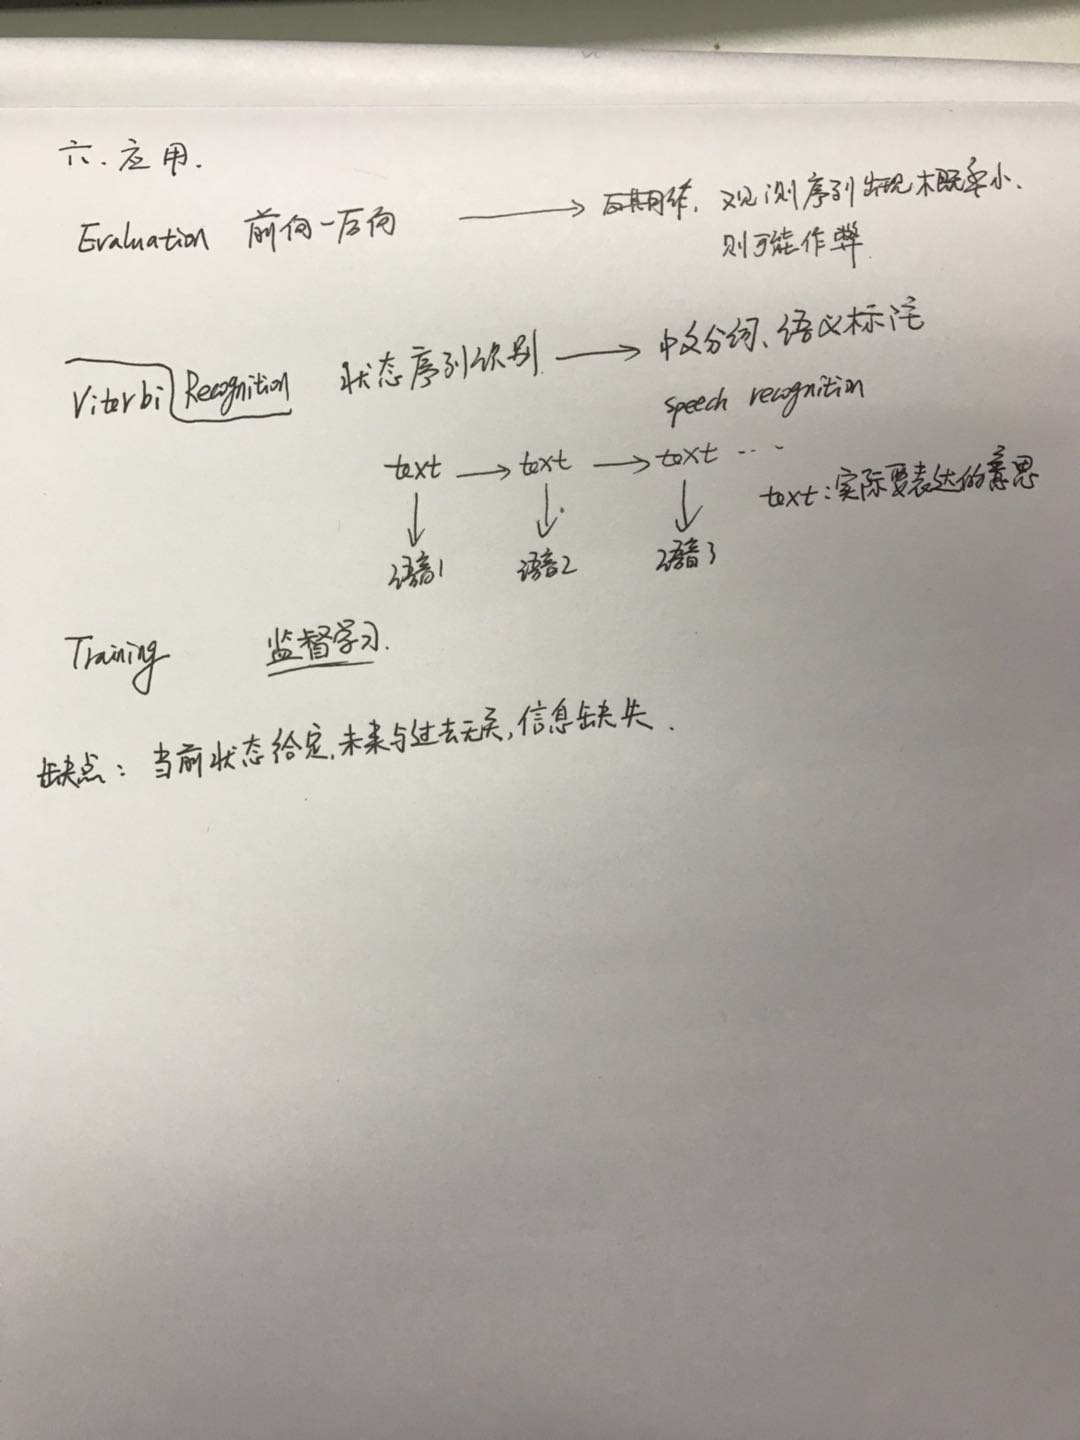 六、应用.
Evaluation 前向-后向 → 观测序列出现概率小.
则可能作弊.
Viterbi Recognition 状态序列识别. → 中文分词、语义标注
speech recognition
text → text → text ...
text:实际要表达的意思
语音1 语音2 语音3
Training 监督学习.
缺点: 当前状态给定,未来与过去无关,信息缺失.